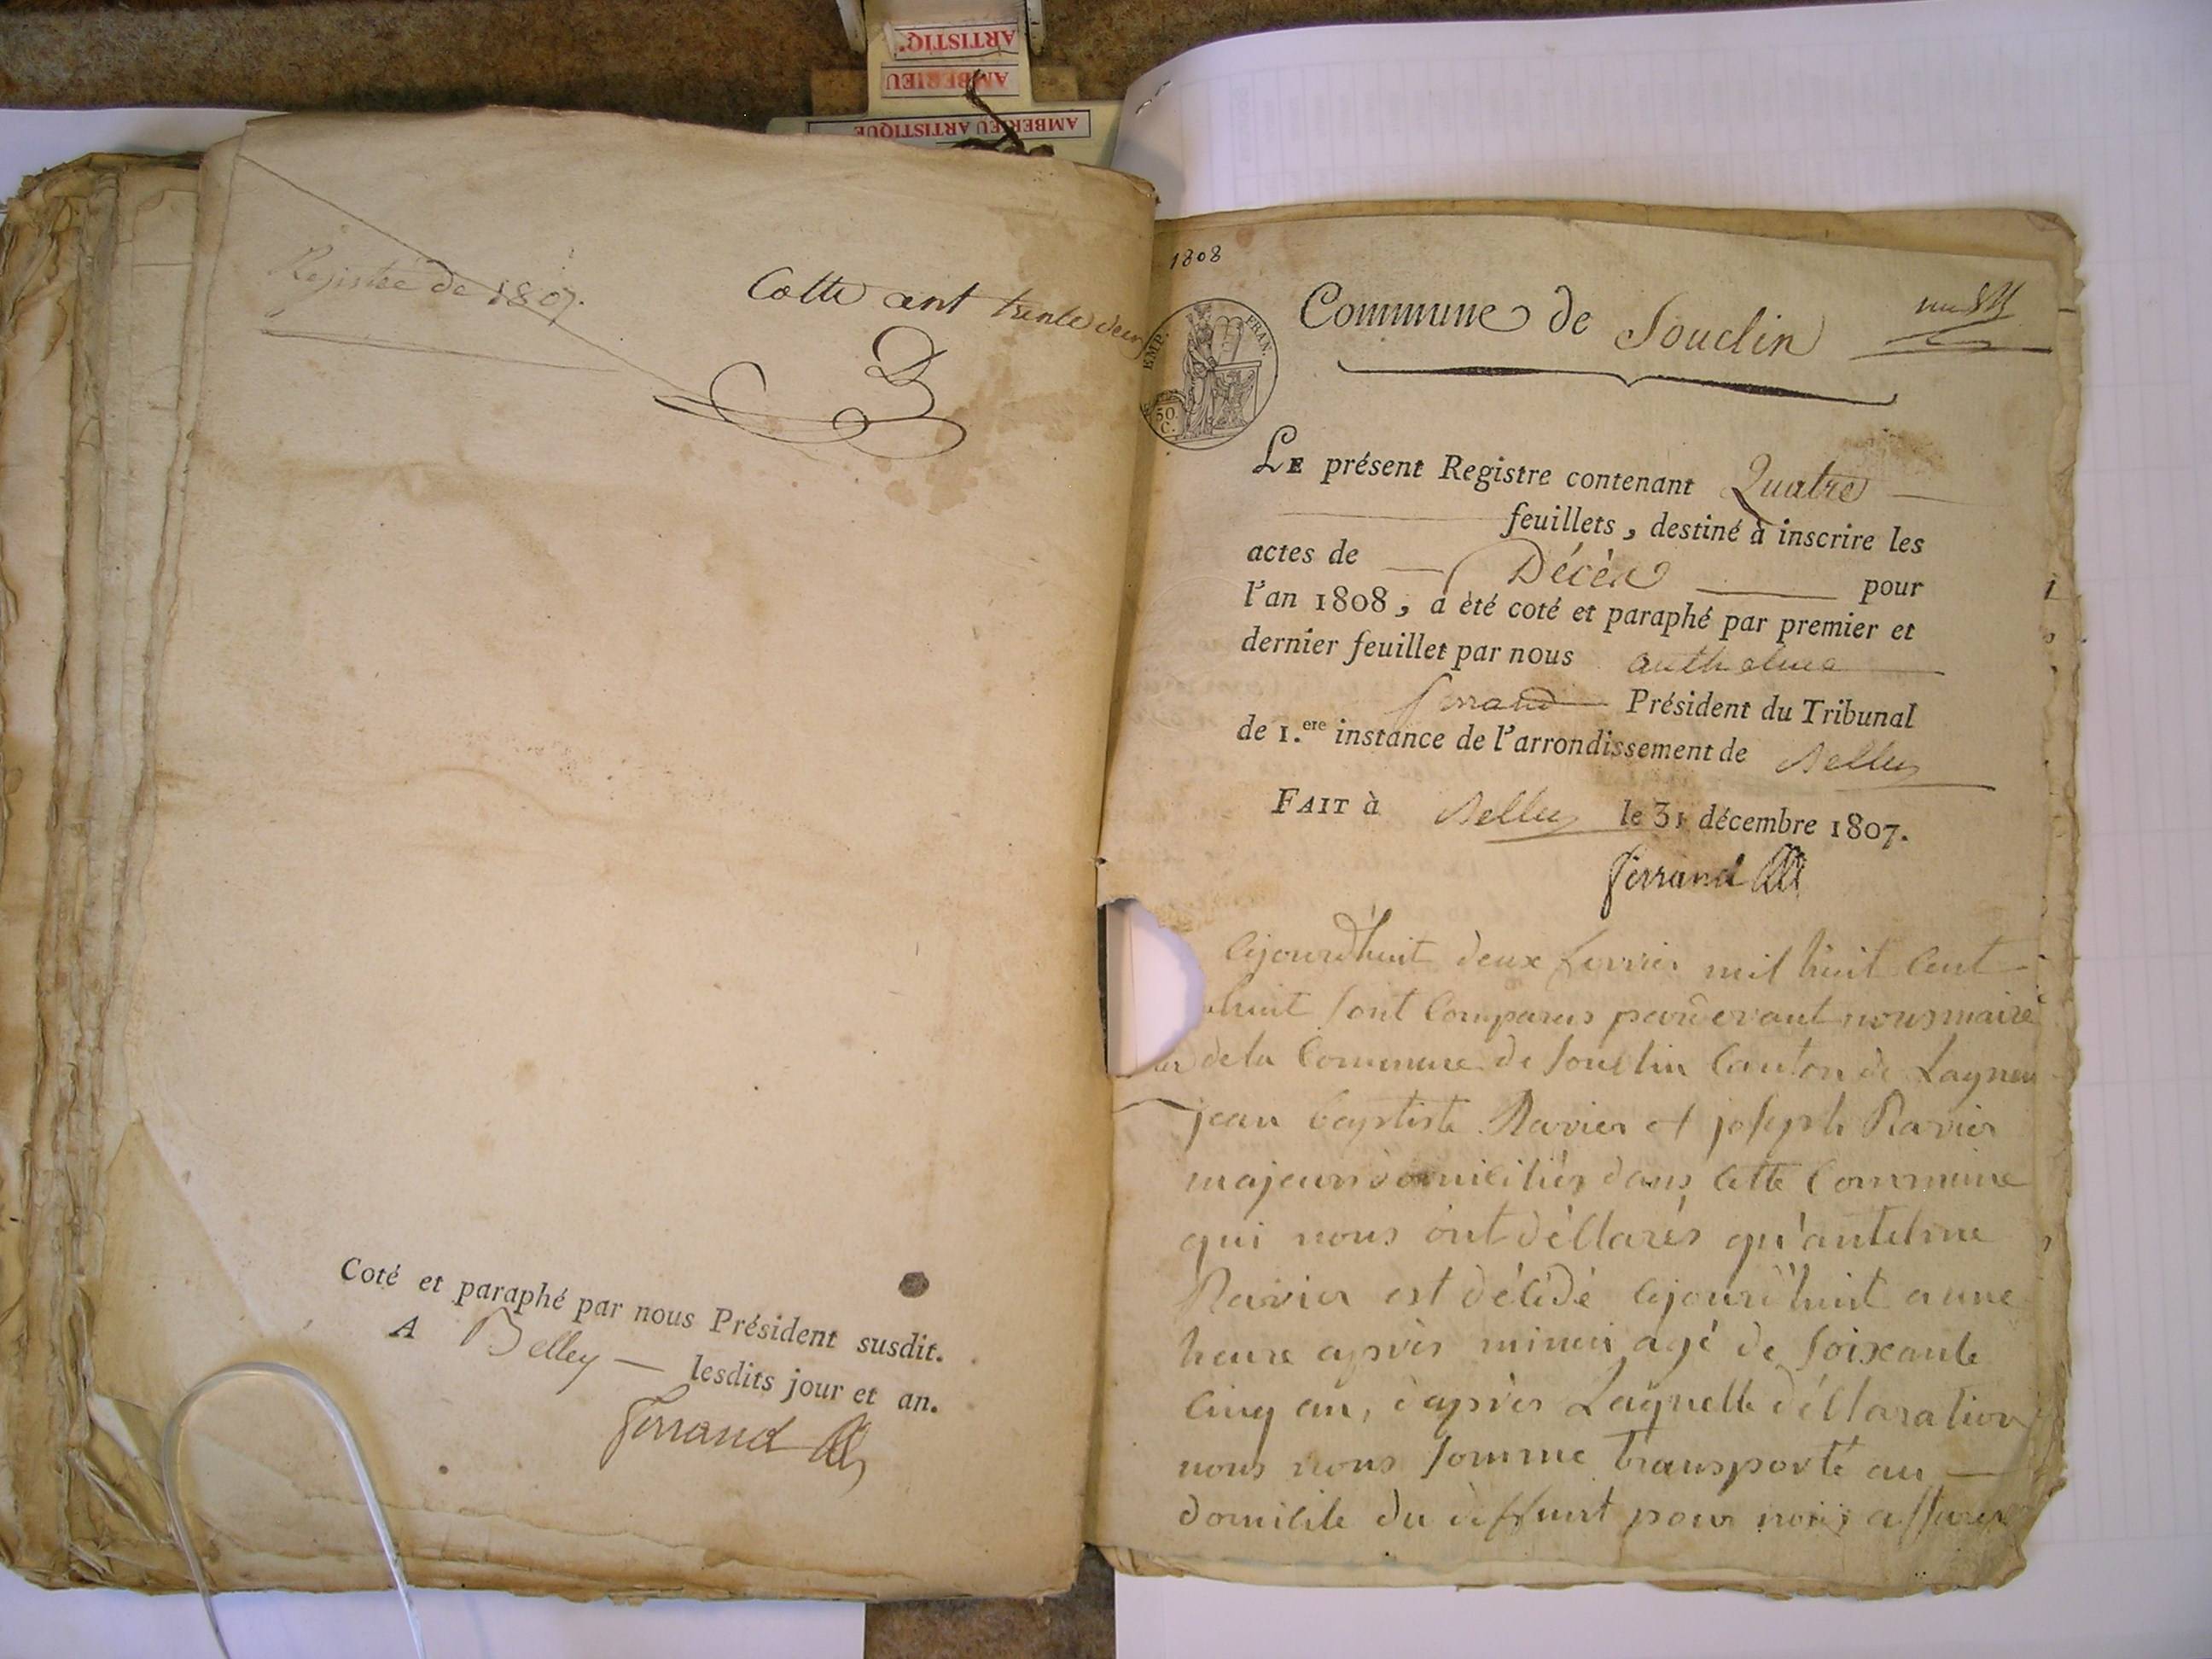 ARTISTIQ'
AMBERIEU
AMBERIEU ARTISTIQUE
Registre de 1807.
Cotte cent trente deux
Coté et paraphé par nous Président susdit.
A Belley — lesdits jour et an.
Ferrand
1808
EMP. FRAN.
50.
C.
Commune de Souclin
LE présent Registre contenant Quatre
feuillets, destiné à inscrire les
actes de Décès pour
l'an 1808, a été coté et paraphé par premier et
dernier feuillet par nous anthelme
ferrand Président du Tribunal
de 1.ere instance de l'arrondissement de Belley
FAIT à Belley le 31 décembre 1807.
Ferrand
Cejourd'huit deux fevrier mil huit Cent
huit sont Comparus pardevant nous maire
de la Commune de Souclin Canton de Lagneu
jean baptiste Ravier et joseph Ravier
majeurs domiciliés dans Cette Commune
qui nous ont déClarés qu'antelme
Ravier est déCédé Cejourd'huit a une
heure après minui agé de Soixante
Cinq an, d'après Laquelle déClaration
nous nous somme transporté au
domicile du deffunt pour nous assurer